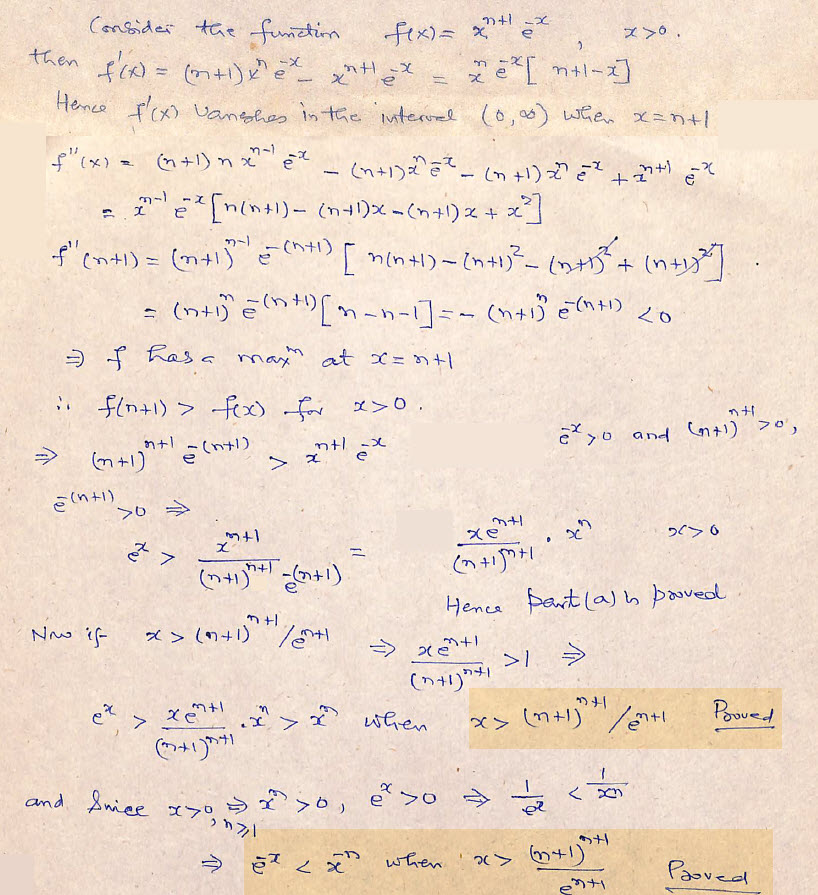 Consider the function f(x) = x^{n+1} e^{-x}, x>0.
then f'(x) = (n+1)x^n e^{-x} - x^{n+1} e^{-x} = x^n e^{-x}[n+1-x]
Hence f'(x) vanishes in the interval (0,∞) when x=n+1
f''(x) = (n+1) n x^{n-1} e^{-x} - (n+1)x^n e^{-x} - (n+1) x^n e^{-x} + x^{n+1} e^{-x}
= x^{n-1} e^{-x}[n(n+1) - (n+1)x - (n+1)x + x^2]
f''(n+1) = (n+1)^{n-1} e^{-(n+1)} [n(n+1) - (n+1)^2 - (n+1)^2 + (n+1)^2]
= (n+1)^n e^{-(n+1)}[n-n-1] = -(n+1)^n e^{-(n+1)} <0
⇒ f has a max^m at x=n+1
∴ f(n+1) > f(x) for x>0.
⇒ (n+1)^{n+1} e^{-(n+1)} > x^{n+1} e^{-x} e^{-x}>0 and (n+1)^{n+1}>0,
e^{-(n+1)}>0 ⇒
e^x > x^{n+1} / (n+1)^{n+1} e^{-(n+1)} = xe^{n+1} / (n+1)^{n+1} . x^n x>0
Hence part(a) is proved
Now if x > (n+1)^{n+1}/e^{n+1} ⇒ xe^{n+1} / (n+1)^{n+1} >1 ⇒
e^x > xe^{n+1} / (n+1)^{n+1} . x^n > x^n when x> (n+1)^{n+1}/e^{n+1} Proved
and Since x>0, n≥1 ⇒ x^n>0, e^x>0 ⇒ 1/e^x < 1/x^n
⇒ e^{-x} < x^{-n} when x> (n+1)^{n+1} / e^{n+1} Proved